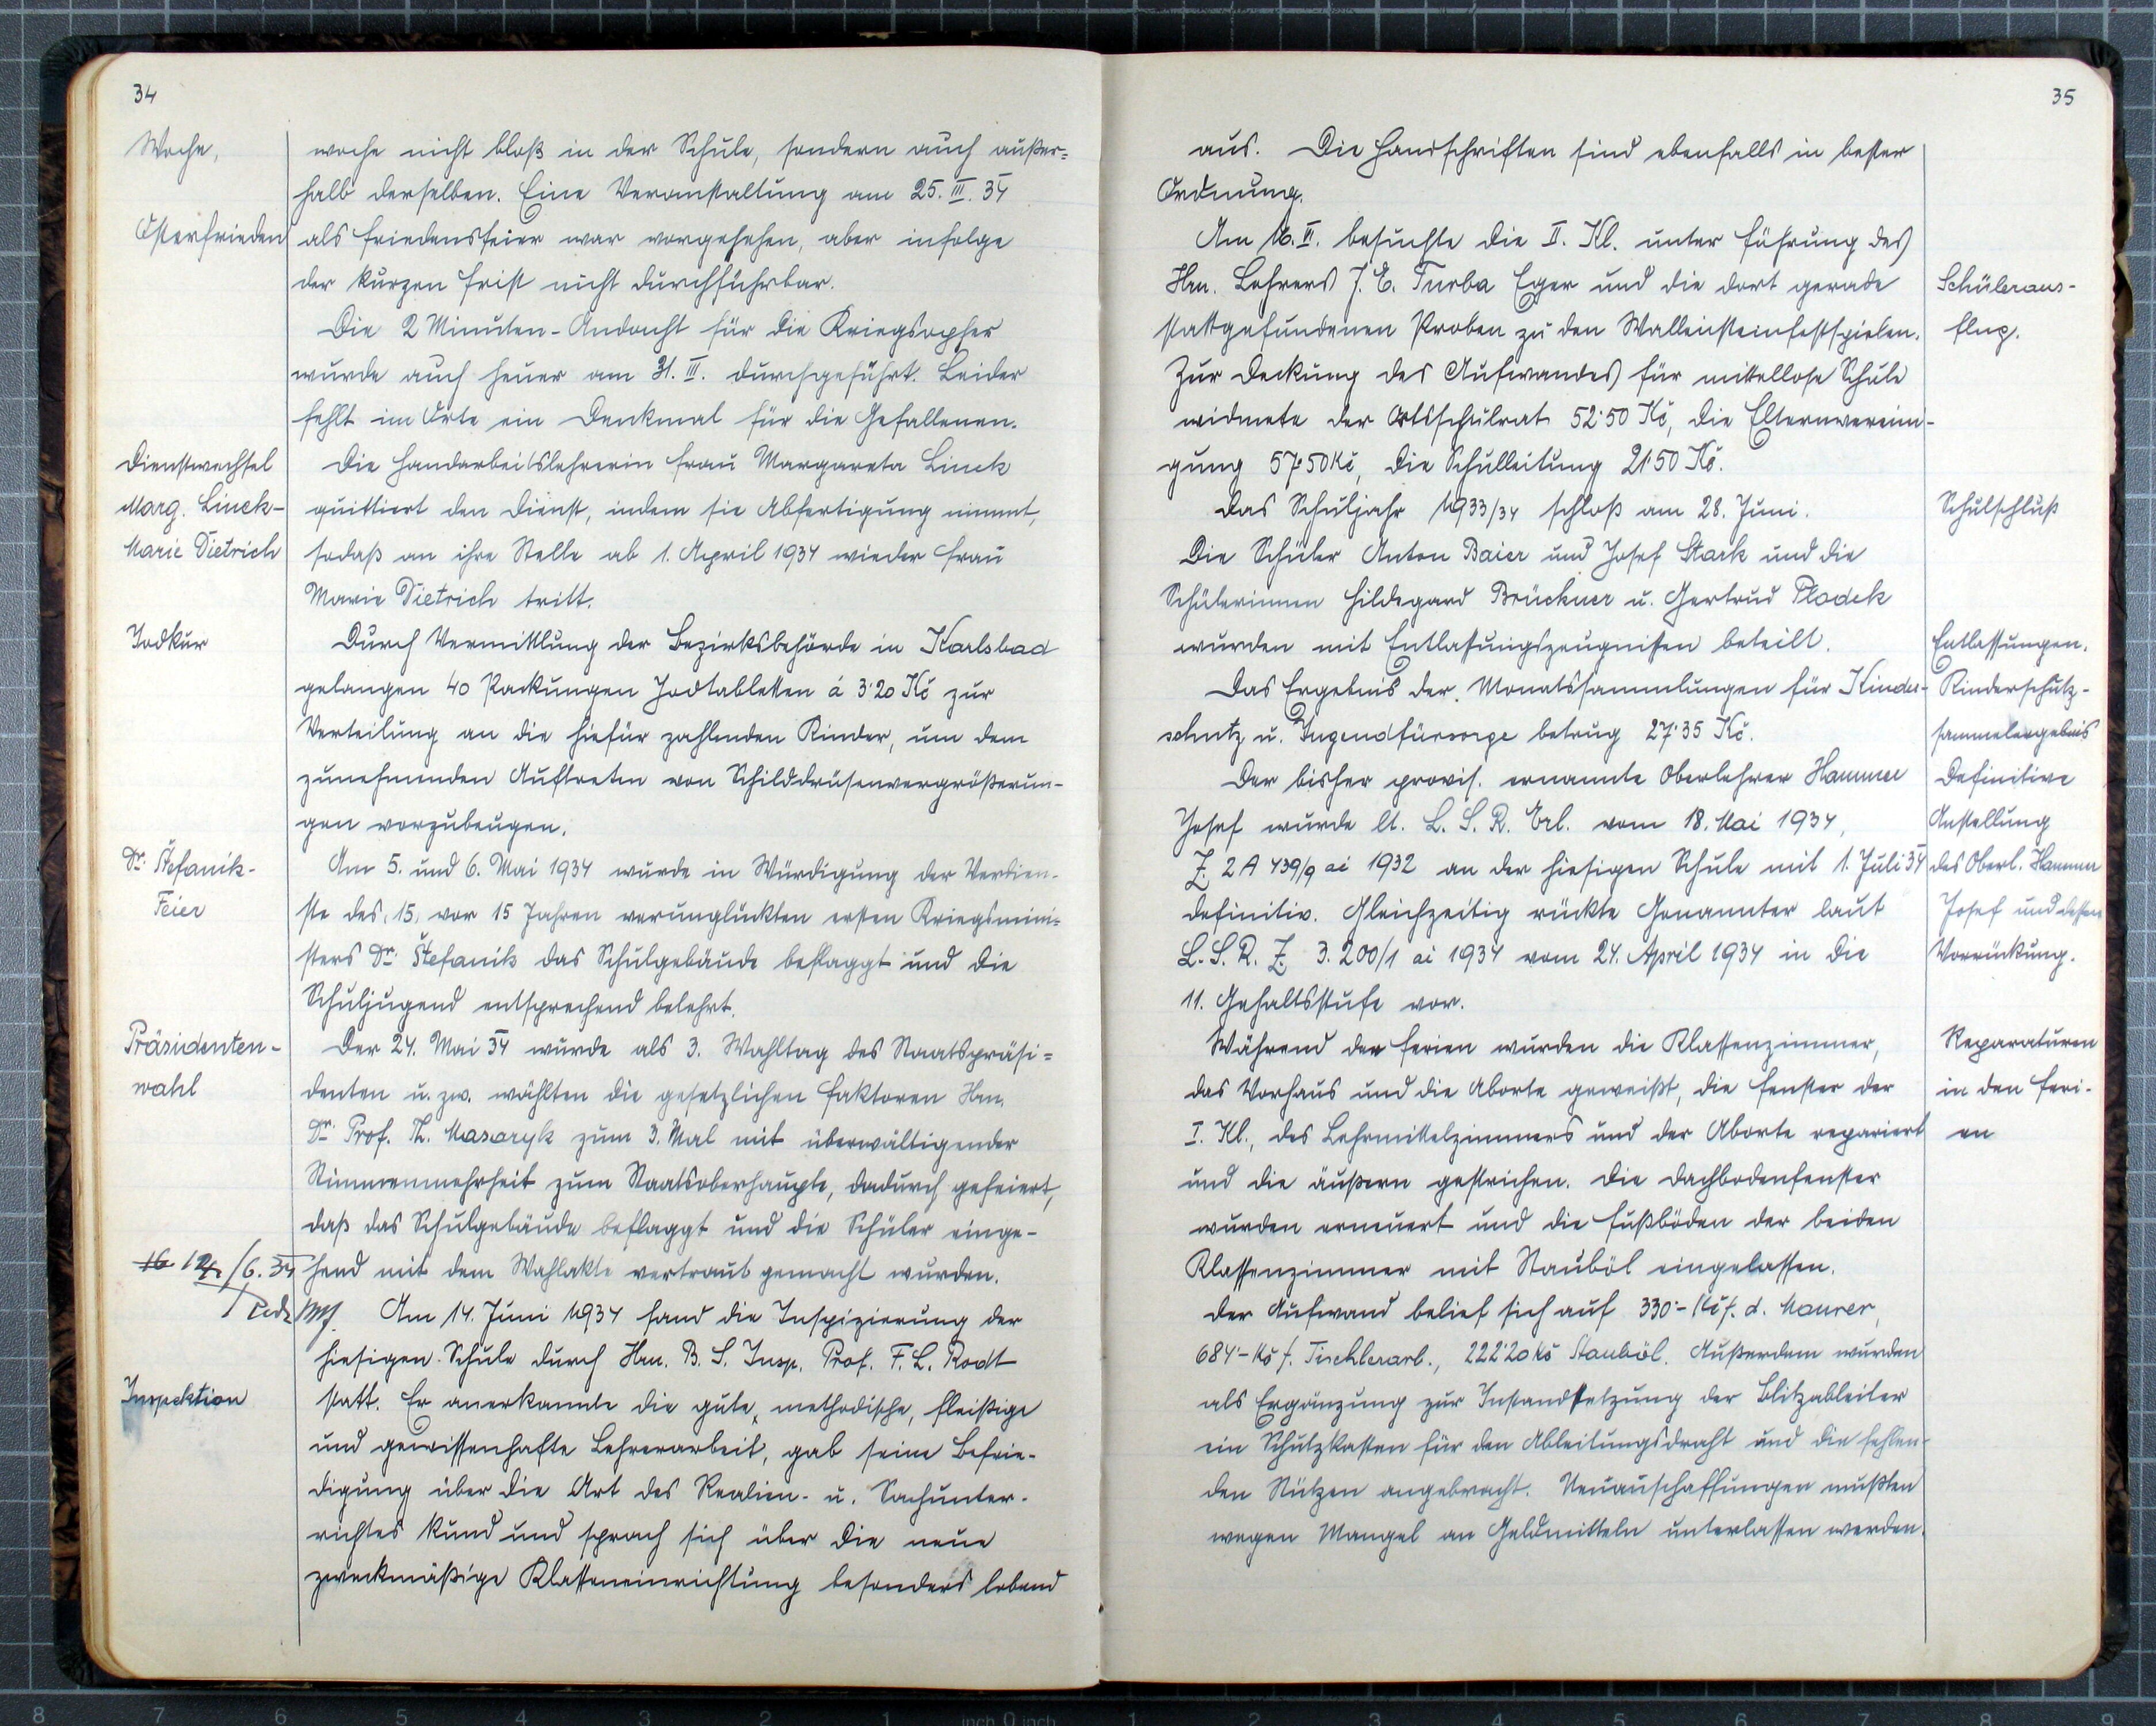 34
Woche,
woche nicht bloß in der Schule, sondern auch außer=
halb derselben. Eine Veranstaltung am 25. III. 34
Osterfrieden
als Friedensfeier war vorgesehen, aber infolge
der kurzen Frist nicht durchführbar.
Die 2 Minuten-Andacht für die Kriegsopfer
wurde auch heuer am 31. III. durchgeführt. Leider
fehlt im Orte ein Denkmal für die Gefallenen.
Dienstwechsel
Marg. Linck-
Marie Dietrich
Die Handarbeitslehrerin Frau Margareta Linck
quittiert den Dienst, indem sie Abfertigung nimmt,
sodaß an ihre Stelle ab 1. April 1934 wieder Frau
Marie Dietrich tritt.
Jodkur
Durch Vermittlung der Bezirksbehörde in Karlsbad
gelangen 40 Packungen Jodtabletten á 3·20 Kč zur
Verteilung an die hiefür zahlenden Kinder, um dem
zunehmenden Auftreten von Schilddrüsenvergrößerun-
gen vorzubeugen.
Dr. Štefanik-
Feier
Am 5. und 6. Mai 1934 wurde in Würdigung der Verdien-
ste des, 15, vor 15 Jahren verunglückten ersten Kriegsmini=
sters Dr. Štefanik das Schulgebäude beflaggt und die
Schuljugend entsprechend belehrt.
Präsidenten-
wahl
Der 24. Mai 34 wurde als 3. Wahltag des Staatspräsi=
denten u. zw. wählten die gesetzlichen Faktoren Hrn.
Dr. Prof. Th. Masaryk zum 3. Mal mit überwältigender
Stimmenmehrheit zum Staatsoberhaupte, dadurch gefeiert,
daß das Schulgebäude beflaggt und die Schüler einge-
hend mit dem Wahlakte vertraut gemacht wurden.
16 14/6. 34
Am 14. Juni 1934 fand die Inspizierung der
hiesigen Schule durch Hrn. B. S. Insp. Prof. F. L. Rodt
Inspektion
statt. Er anerkannte die gute, methodische, fleißige
und gewissenhafte Lehrerarbeit, gab seine Befrie-
digung über die Art des Realien- u. Sachunter-
richtes kund und sprach sich über die neue
zweckmäßige Klasseneinrichtung besonders lobend
35
aus. Die Handschriften sind ebenfalls in bester
Ordnung.
Am 16. VI. besuchte die II. Kl. unter Führung des
Hrn. Lehrers J. E. Turba Eger und die dort gerade
stattgefundenen Proben zu den Wallensteinfestspielen.
Schüleraus-
flug.
Zur Deckung des Aufwandes für mittellose Schüle
widmete der Ortsschulrat 52·50 Kč, die Elternverein-
gung 57·50 Kč, die Schulleitung 21·50 Kč.
Das Schuljahr 1933/34 schloß am 28. Juni.
Schulschluß
Die Schüler Anton Baier und Josef Stark und die
Schülerinnen Hildegard Brückner u. Gertrud Plodek
wurden mit Entlassungszeugnissen beteilt.
Entlassungen.
Das Ergebnis der Monatssammlungen für Kinder-
schutz u. Jugendfürsorge betrug 27·35 Kč.
Kinderschutz-
sammelergebnis
Der bisher provis. ernannte Oberlehrer Hammer
Josef wurde lt. L. S. R. Erl. vom 18. Mai 1934,
Z. 2 A 439/9 ai 1932 an der hiesigen Schule mit 1. Juli 34
definitiv. Gleichzeitig rückte Genannter laut
L. S. R. Z. 3.200/1 ai 1934 vom 24. April 1934 in die
11. Gehaltsstufe vor.
Definitive
Anstellung
des Oberl. Hammer
Josef und dessen
Vorrückung.
Während der Ferien wurden die Klassenzimmer,
das Vorhaus und die Aborte geweißt, die Fenster der
I. Kl., des Lehrmittelzimmers und der Aborte repariert
und die äußern gestrichen. Die Dachbodenfenster
wurden erneuert und die Fußböden der beiden
Klassenzimmer mit Stauböl eingelassen.
Reparaturen
in den Feri-
en
Der Aufwand belief sich auf 330·- Kč f. d. Maurer,
684·- Kč f. Tischlerarb., 222·20 Kč Stauböl. Außerdem wurden
als Ergänzung zur Instandsetzung der Blitzableiter
ein Schutzkasten für den Ableitungsdraht und die fehlen-
den Stützen angebracht. Neuanschaffungen mußten
wegen Mangel an Geldmitteln unterlassen werden.
8 7 6 5 4 3 2 1 inch 0 inch 1 2 3 4 5 6 7 8 9